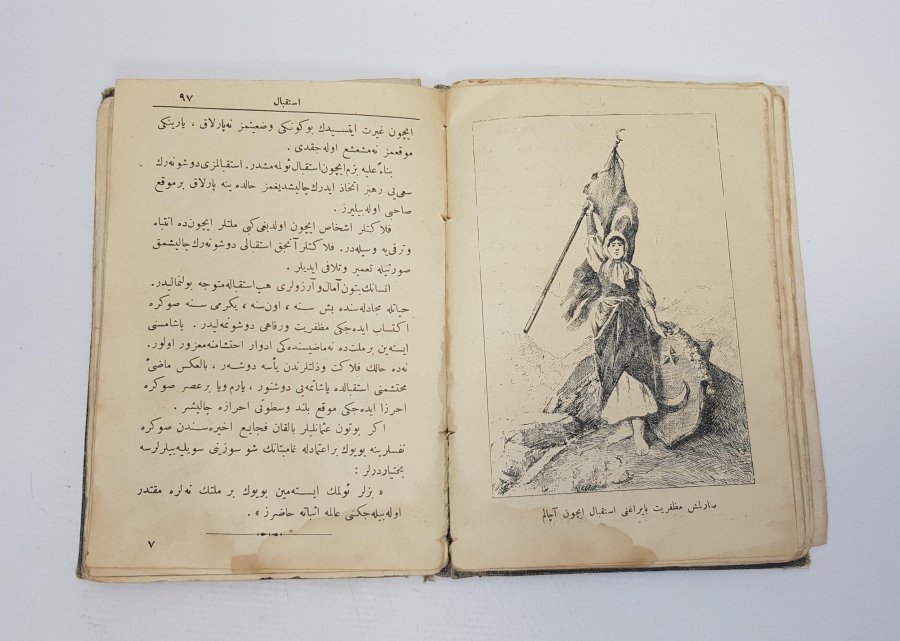 استقبال ٩٧
ايچون غيرت ايتسيدك بوكونكى وضعيتمز نه پارلاق ، يارينكى
موقعمز نه مشعشع اوله جقدى .
بناءً عليه بزم ايچون استقبال ئولمه مشدر. استقبالمزى دوشونه رك
سعى بى رهبر اتخاذ ايدرك چاليشديغمز حالده ينه پارلاق بر موقع
صاحبى اوله بيليرز .
فلاكتلر اشخاص ايچون اولديغى كبى ملتلر ايچون ده انتباه
وترقى يه وسيله در. فلاكتلر آنجق استقبالى دوشونه رك چاليشمق
صورتيله تعمير وتلافى ايديلر .
انسانك بتون آمال و آرزولرى هپ استقباله متوجه بولنماليدر.
حياتله مجادله سنده بش سنه ، اون سنه ، يكرمى سنه صوكره
اكتساب ايده جكى مظفريت ورفاهى دوشونمه ليدر . ياشامسنى
ايسته ين بر ملت ده نه ماضيسنده كى ادوار احتشامنه مغرور اولور،
نه ده حالك فلاكت وذلتلرندن يأسه دوشر ، بالعكس ماضئ
محتشمنى استقبالده ياشاتمه يى دوشنور ، يارم ويا بر عصر صوكره
احرزا ايده جكى موقع بلند وسطوتى احرازه چاليشر .
اكر بوتون عثمانليلر بالقان فجايع اخيره سندن صوكره
نفسلرينه بويوك بر اعتمادله غامبتانك شو سوزينى سويليه بيلرلرسه
بختياردرلر :
« بزلر ئولمك ايسته مين بويوك بر ملتك نه لره مقتدر
اوله بيله جكنى عالمه اثباته حاضرز » .
٧
مظفريت بايراغنى استقبال ايچون آچالم